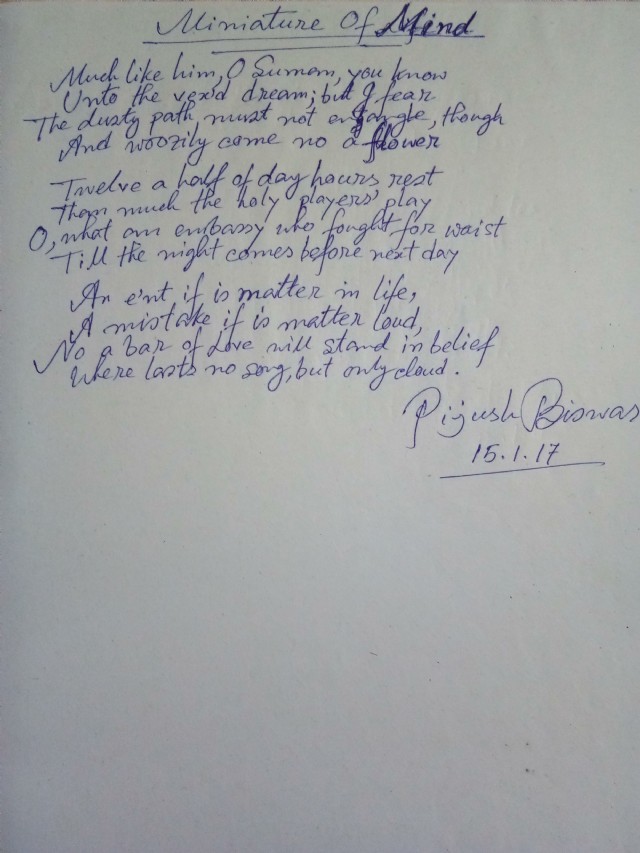 Miniature Of Mind
Much like him, O Sumon, you know
Unto the vex'd dream; but I fear
The dusty path must not entangle, though
And woozily come no a flower
Twelve a half of day hours rest
Than much the holy players' play
O, what an embassy who fought for waist
Till the night comes before next day
An e'nt if is matter in life,
A mistake if is matter loud,
No a bar of Love will stand in belief
Where lasts no song, but only cloud.
Pijush Biswas
15.1.17